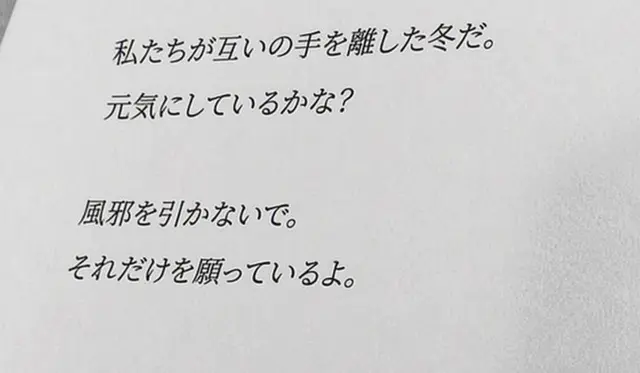 私たちが互いの手を離した冬だ。
元気にしているかな？
風邪を引かないで。
それだけを願っているよ。